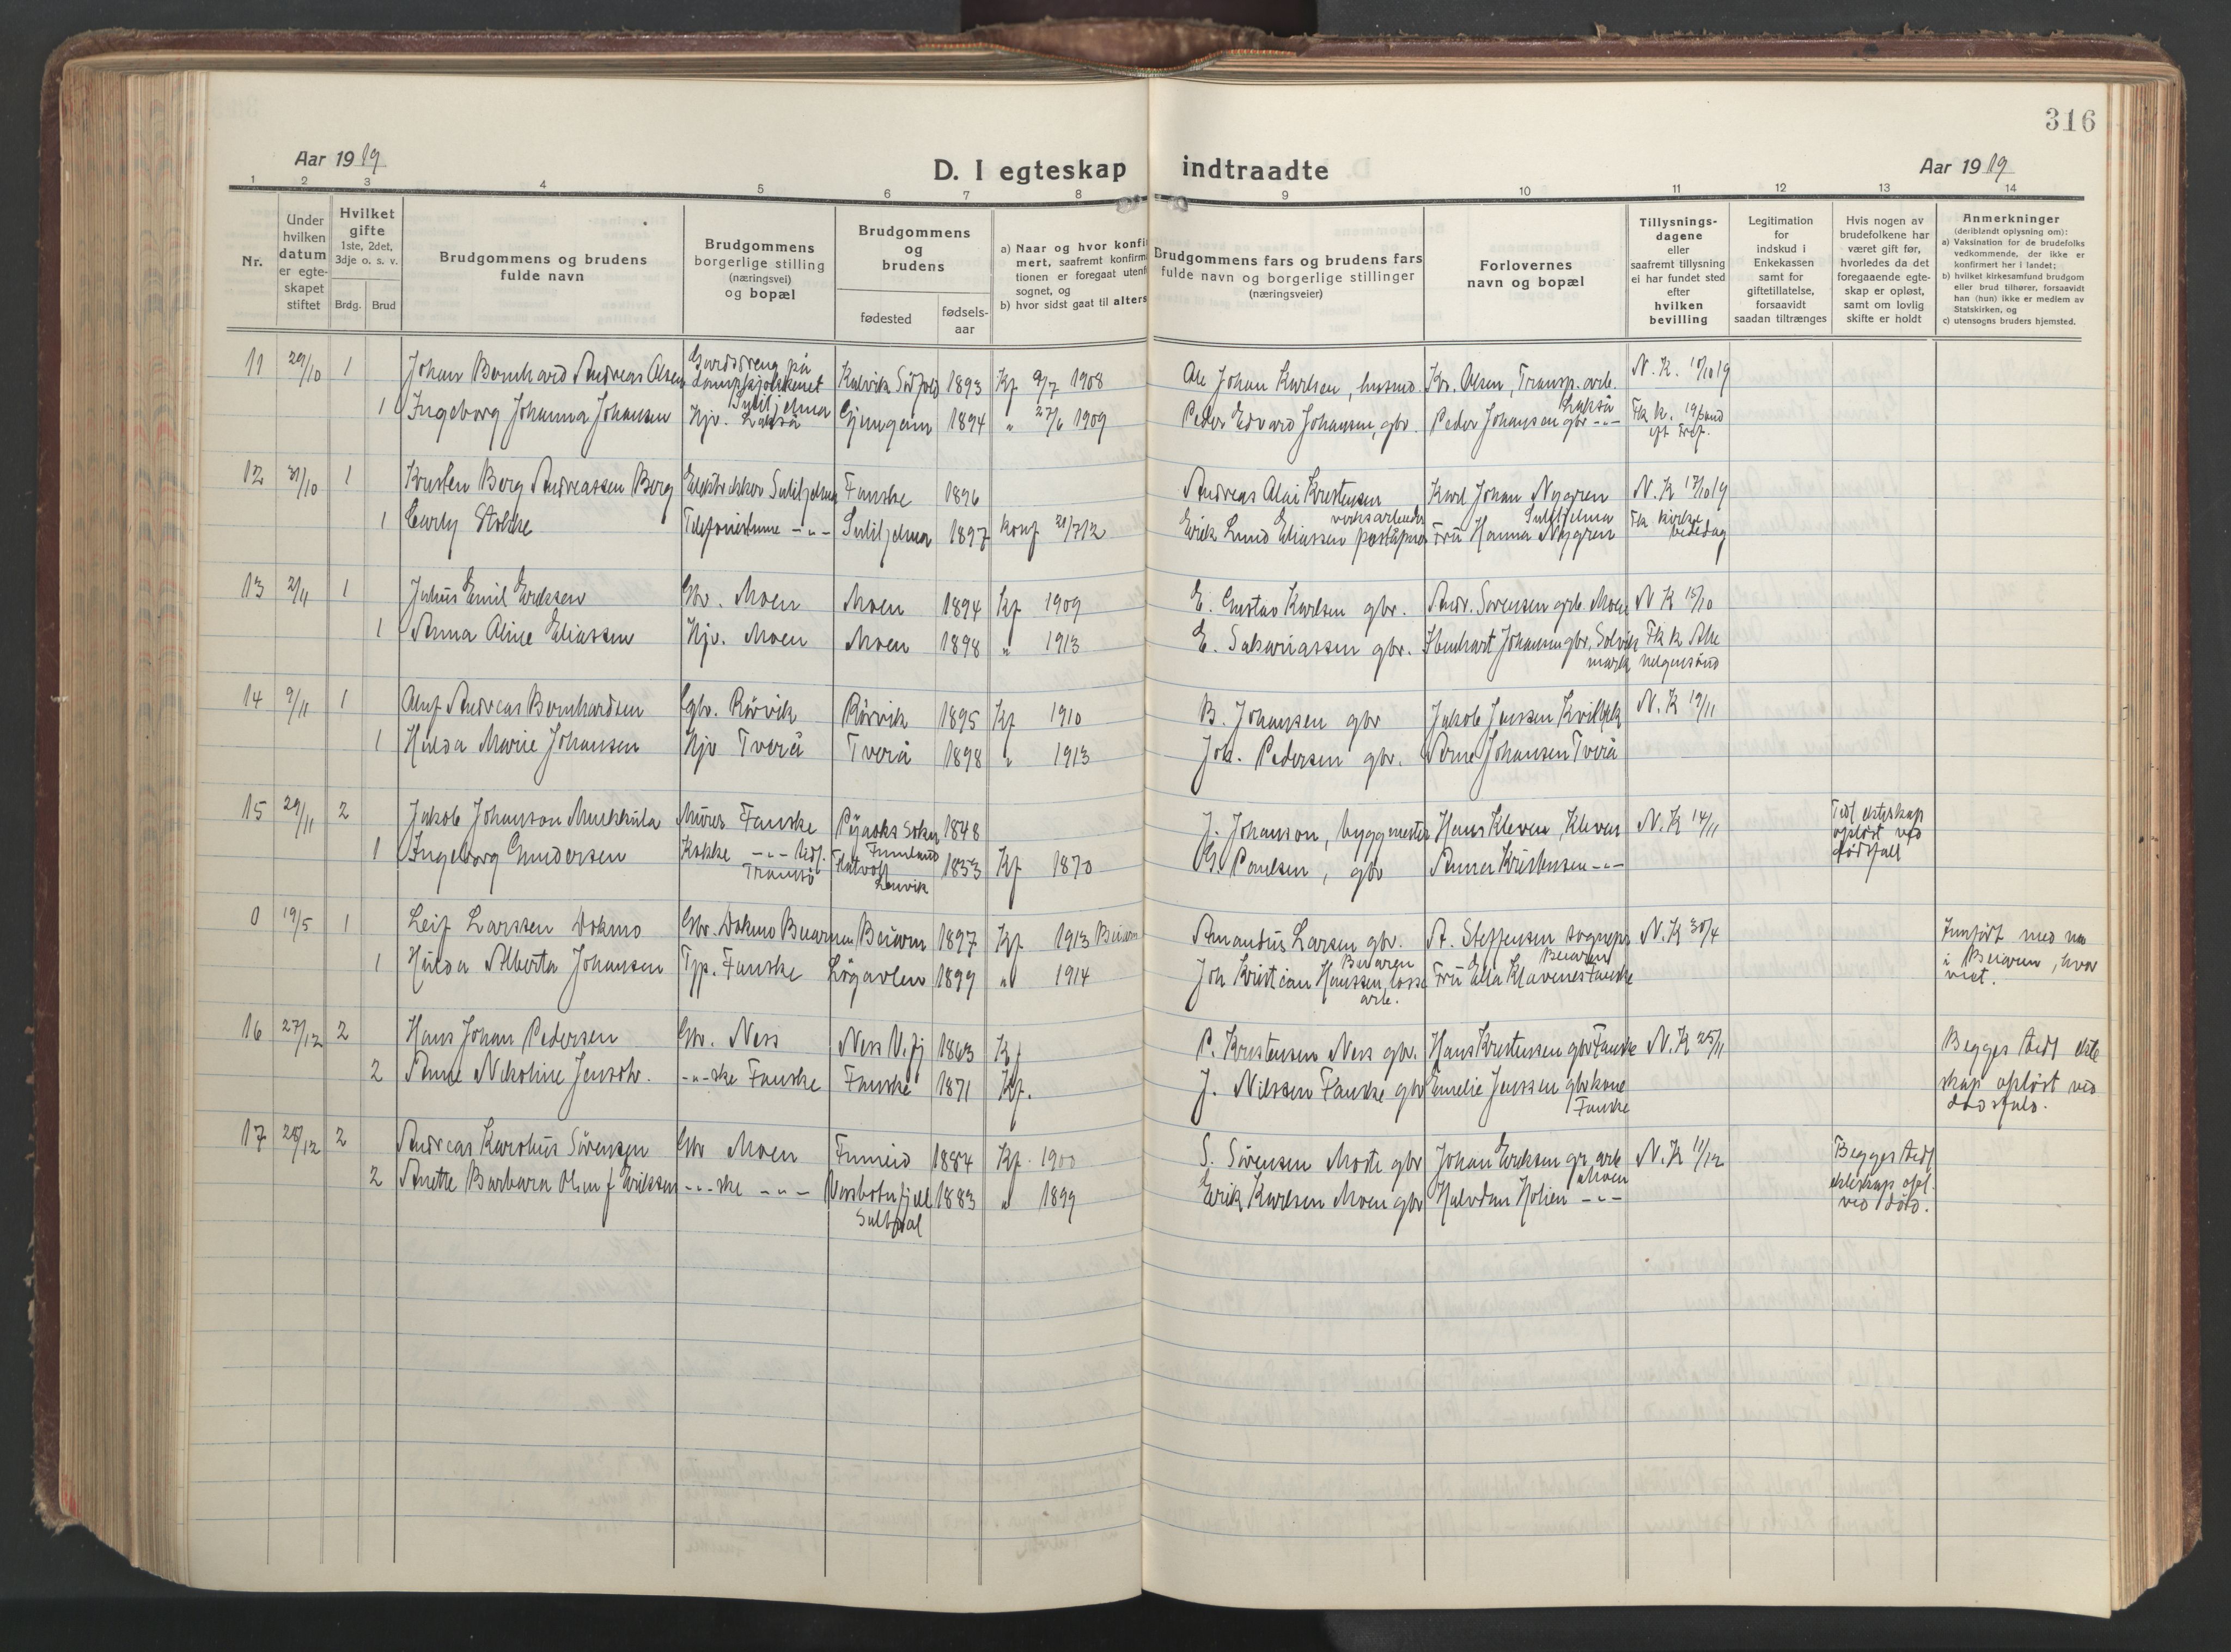 316
Aar 1919
D. I egteskap indtraadte
Aar 1919
1 2 3 4 5 6 7 8 9 10 11 12 13 14
Nr.
Under hvilken datum er egteskapet stiftet
Hvilket gifte 1ste, 2det, 3dje o. s. v.
Brdg. Brud
Brudgommens og brudens fulde navn
Brudgommens borgerlige stilling (næringsvei) og bopæl
Brudgommens og brudens
fødested
fødselsaar
a) Naar og hvor konfi
mert, saafremt konfirm
tionen er foregaat utenf
sognet, og
b) hvor sidst gaat til alters
Brudgommens fars og brudens fars fulde navn og borgerlige stillinger (næringsveier)
Forlovernes navn og bopæl
Tillysningsdagene eller saafremt tillysning ei har fundet sted efter hvilken bevilling
Legitimation for indskud i Enkekassen samt for giftetillatelse, forsaavidt saadan tiltrænges
Hvis nogen av brudefolkene har været gift før, hvorledes da det foregaaende egteskap er opløst, samt om lovlig skifte er holdt
Anmerkninger
(deriblandt oplysning om):
a) Vaksination for de brudefolks vedkommende, der ikke er konfirmert her i landet;
b) hvilket kirkesamfund brudgom eller brud tilhører, forsaavidt han (hun) ikke er medlem av Statskirken, og
c) utensogns bruders hjemsted.
11 29/10 1 Johan Bernhard Andreas Olsen Gardsdreng på Sulitjelma 1893 Kf 9/7 1908 Ole Johan Karlsen, husmd. Kr. Olsen, Transp. arb. N. K. 19
1 Ingeborg Johanna Johansen Hjv. Lakså 1894 " 27/6 1909 Peder Edvard Johansen, gbr. Peder Johansen gbr -"- Lakså
12 31/10 1 Kristen Berg Andreassen Berg Sulitjelma Fauske 1896 Andreas Olai Kristensen verksarbeider Karl Johan Nygren Sulitjelma N. K 17/10 19
1 Telefonistinne -"- Sulitjelma 1897 Konf 21/7 12 Erik Lund Eliassen Fru Hanna Nygren
13 2/11 1 Julius Emil Eriksen Gbr. Moen Moen 1894 Kf 1909 E. Gustav Karlsen gbr. Andr. Sørensen Moen N K 15/10
1 Anna Aline Eliassen Hjv. Moen Moen 1898 " 1913 E. Sakariassen gbr. Johansen gbr, helgensund
14 9/11 1 Andreas Bernhardsen Gbr. Rørvik Rørvik 1895 Kf 1910 B. Johansen gbr Jakob Jenssen N. K 19/11
1 Hulda Marie Johansen Hjv Tverå Tverå 1898 " 1913 Joh. Pedersen gbr. Arne Johansen Tverå
15 29/11 2 Jakob Johanson Murer Fauske Finnland 1848 J. Johanson, byggmester Hans Kleven, Kleven N. K 14/11 Tidl ekteskap opløst ved dødsfall
1 Ingeborg Gundersen Kokke -"- tidl. Tromsø Lenvik 1853 Kf 1870 G. Paulsen, gbr Anna Kristensen -"-
0 19/5 1 Leif Larssen Dokmo Gbr. Dokmo Beiarn 1897 Kf 1913 Beiarn Amandus Larsen gbr. Beiaren A. Steffensen Beiaren N. K 30/4 Innført med no i Beiaren, hvor viet.
1 Hulda Alberta Johansen Tjp. Fauske Løgavlen 1899 " 1914 Joh Kristian Hanssen, losse arb. Fru Ella Klavenes Fauske
16 27/12 2 Hans Johan Pedersen Gbr. Ness Ness 1863 Kf P. Kristensen Ness gbr. Hans Kristensen gbr Fauske N. K 25/11 Begges tidl ekte skap opløst ved dødsfald.
2 Anne Nikoline Jensdtr. -"-ske Fauske Fauske 1871 Kf. J. Nilssen Fauske gbr Emelie Jenssen gbrkone Fauske
17 28/12 2 Andreas Karolius Sørensen Gbr Moen Finneid 1884 Kf. 1900 S. Sørensen gbr Johan Eriksen Moen N. K 11/12 Begges tidl ekteskap opl. ved død.
2 Anette Barbara Olsen f Eriksen -"-ske -"- Saltdal 1883 " 1899 Erik Karlsen Moen gbr Halvdan Holien -"-